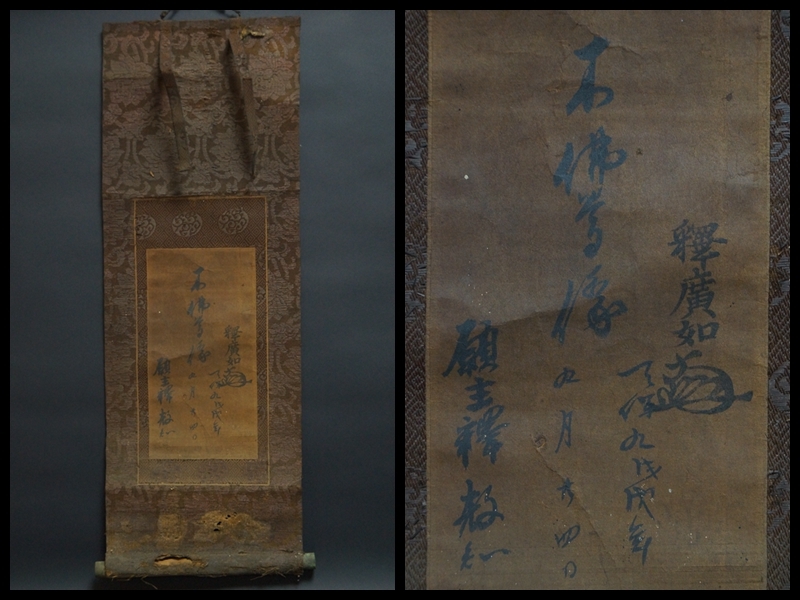 釋廣如
天保九戊戌年
木佛尊像
九月廿四日
願主釋教